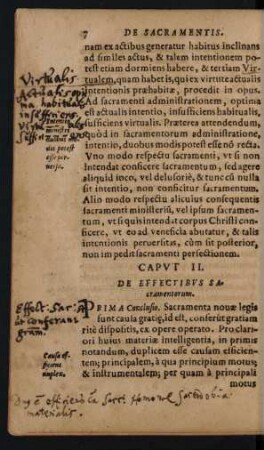 DE SACRAMENTIS.
nam ex actibus generatur habitus inclinans
ad similes actus, & talem intentionem po-
test etiam dormiens habere, & tertiam Vir-
tualem, quam habet is, qui ex virtute actualis
intentionis præhabitæ, procedit in opus.
Ad sacramenti administrationem, optima
est actualis intentio, insufficiens habitualis,
sufficiens virtualis. Præterea attendendum,
quòd in sacramentorum administratione,
intentio, duobus modis potest esse nõ recta.
Vno modo respectu sacramenti, vt si non
intendat conficere sacramentum, sed agere
aliquid ioco, vel delusoriè, & tunc cũ nulla
sit intentio, non conficitur sacramentum.
Alio modo respectu alicuius consequentis
sacramenti ministerij, vel ipsum sacramen-
tum, vt si quis intendit corpus Christi con-
ficere, vt eo ad veneficia abutatur, & talis
intentionis peruersitas, cùm sit posterior,
non impedit sacramenti perfectionem.
CAPVT II.
DE EFFECTIBVS SA-
cramentorum.
PRIMA Conclusio. Sacramenta nouæ legis
sunt causa gratiæ, id est, conferũt gratiam
ritè dispositis, ex opere operato. Pro clari-
ori huius materiæ intelligentia, in primis
notandum, duplicem esse causam efficien-
tem; principalem, à qua principium motus;
& instrumentalem; per quam à principali
motus
Virtualis
potest
esse
Effect: Sac:
Causa ef-
ficiens
duplex.
materialis.